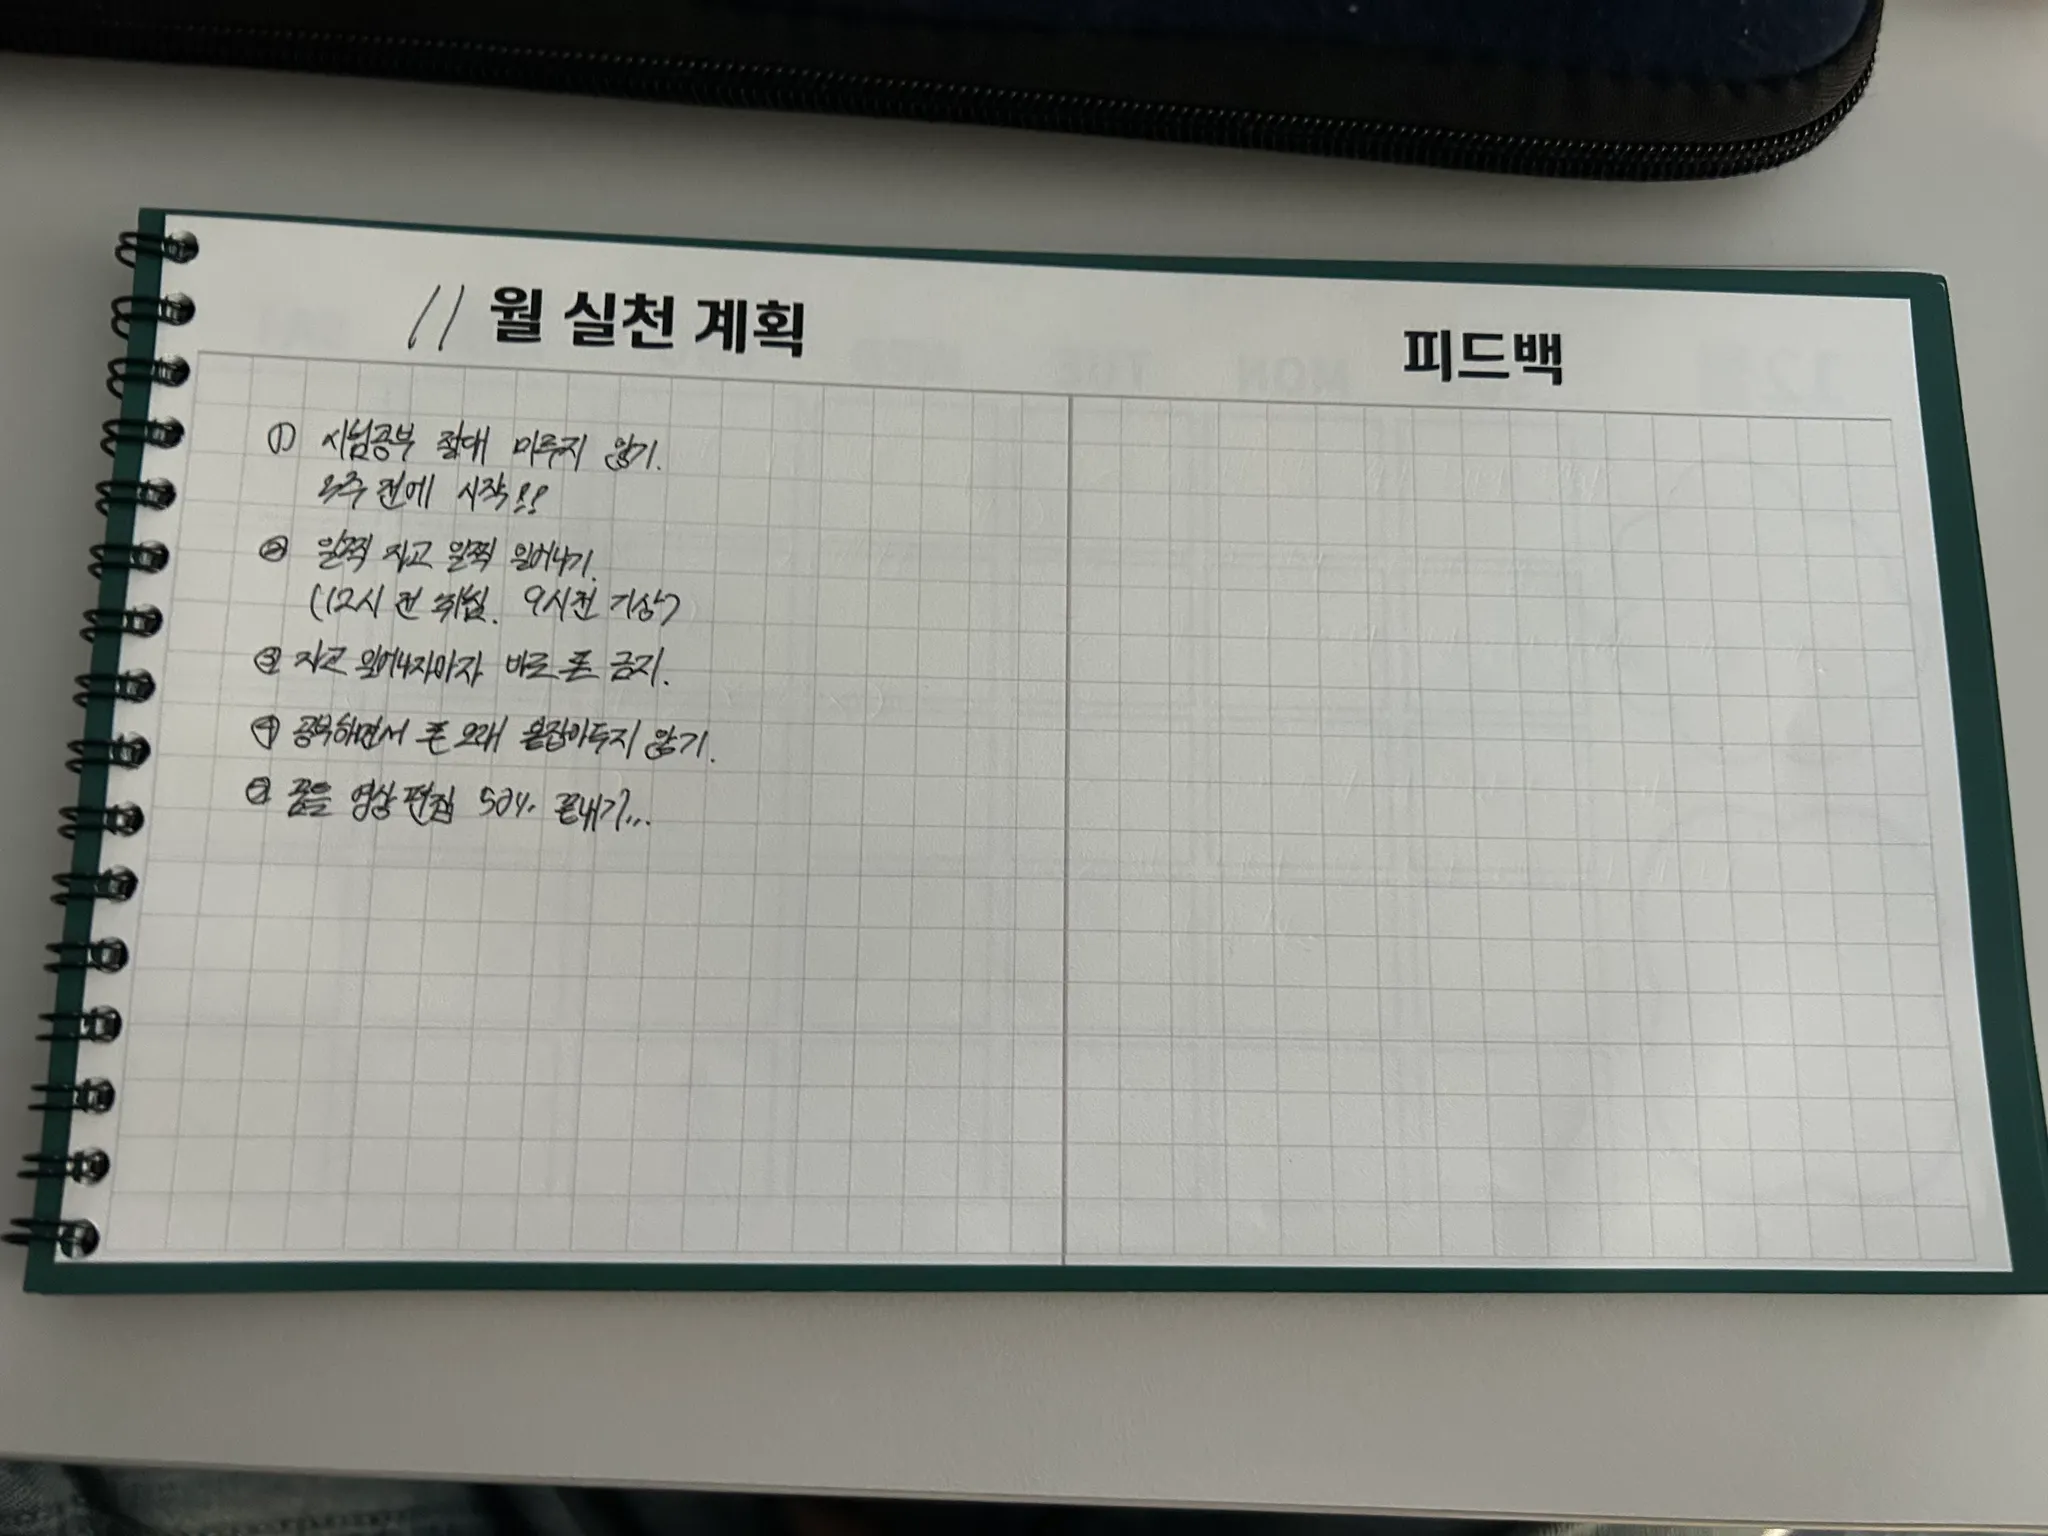 11월 실천 계획
피드백
① 시험공부 절대 미루지 않기.
2주 전에 시작!!
② 일찍 자고 일찍 일어나기.
(12시 전 취침. 9시전 기상)
③ 자고 일어나자마자 바로 폰 금지.
④ 공부하면서 폰 오래 붙잡아두지 않기.
⑤ 영상 편집 50% 끝내기...